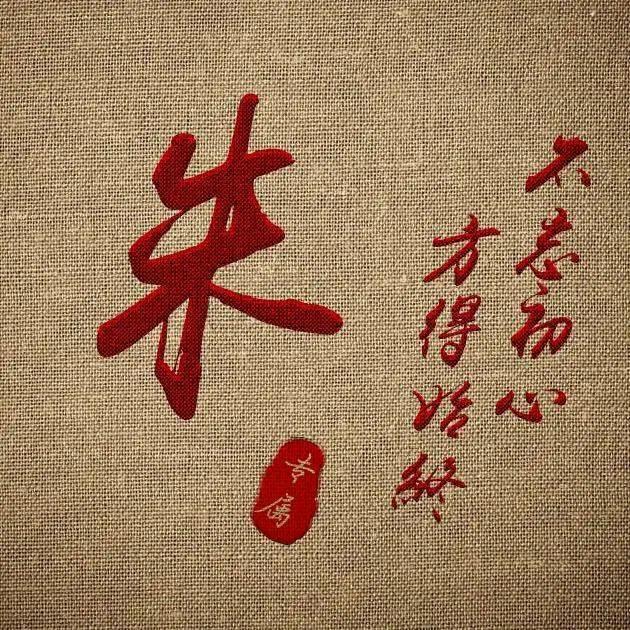 朱
专属
不忘初心
方得始终